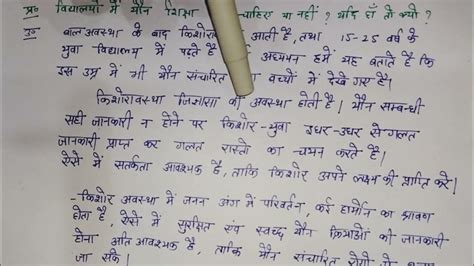 प्र० विद्यालयों में यौन शिक्षा चाहिए या नहीं ? यदि हाँ तो क्यों ?
उ० बाल अवस्था के बाद किशोरा आती है, तथा 15-25 वर्ष के
युवा विद्यालय में पढ़ते है अध्ययन हमें यह बताते है कि
इस उम्र में भी यौन संचारित बच्चों में देखे गए हैं।
किशोरावस्था जिज्ञासा की अवस्था होती है। यौन सम्बन्धी
सही जानकारी न होने पर किशोर-युवा इधर-उधर से गलत
जानकारी प्राप्त कर गलत रास्तों का चयन करते हैं।
ऐसे में सतर्कता आवश्यक है, ताकि किशोर अपने लक्ष्य की प्राप्ति करे।
- किशोर अवस्था में जनन अंग में परिवर्तन, कई हार्मोन का श्रावण
होता है, ऐसे में सुरक्षित एवं स्वच्छ यौन क्रियाओं की जानकारी
होना अति आवश्यक है, ताकि यौन संचारित रोगों से
जा सके।